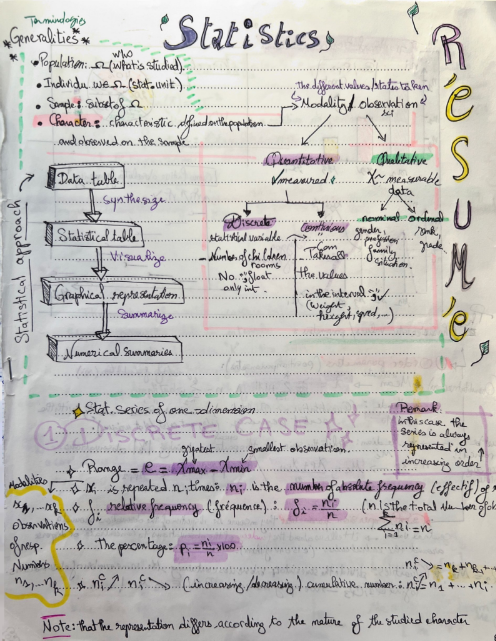 Terminologies
* Generalities *
Statistics
RéSUMé
who
• Population: Ω (what's studied).
• Individu: w ∈ Ω (stat. unit)
• Sample: subset of Ω
• Character: characteristic defined on the population
and observed on the sample
The different values/states taken
Modality/observation
Quantitative
✓ measured
Qualitative
X measurable
data
Discrete
statistical variable
- Number of children
rooms
No float
only int
Continuous
Can
Take all
the values
in the interval
(weight
height, speed, ...)
nominal
gender,
profession
family
situation.
ordinal
rank,
grade
Statistical approach
Data table
Synthesize
Statistical table
Visualize
Graphical representation
Summarize
Numerical summaries
Stat. Series of one dimension
1) DISCRETE CASE
Remark
in this case the
Series is always
represented in
increasing order
greatest smallest observation.
Range = e = Xmax - Xmin
xi is repeated ni times: ni is the number of absolute frequency (effectif) of
fi relative frequency (fréquence): fi = ni/n (n is the total number of
∑ ni = n
The percentage: Pi = ni/n x 100
Modalities
observations
of resp.
Numbers
n1, ... nk
ni↗ ni↘ (increasing/decreasing) cumulative number: ni↗ = n1 + ... + ni.
ni↘ = nk + nk
Note: that the representation differs according to the nature of the studied character